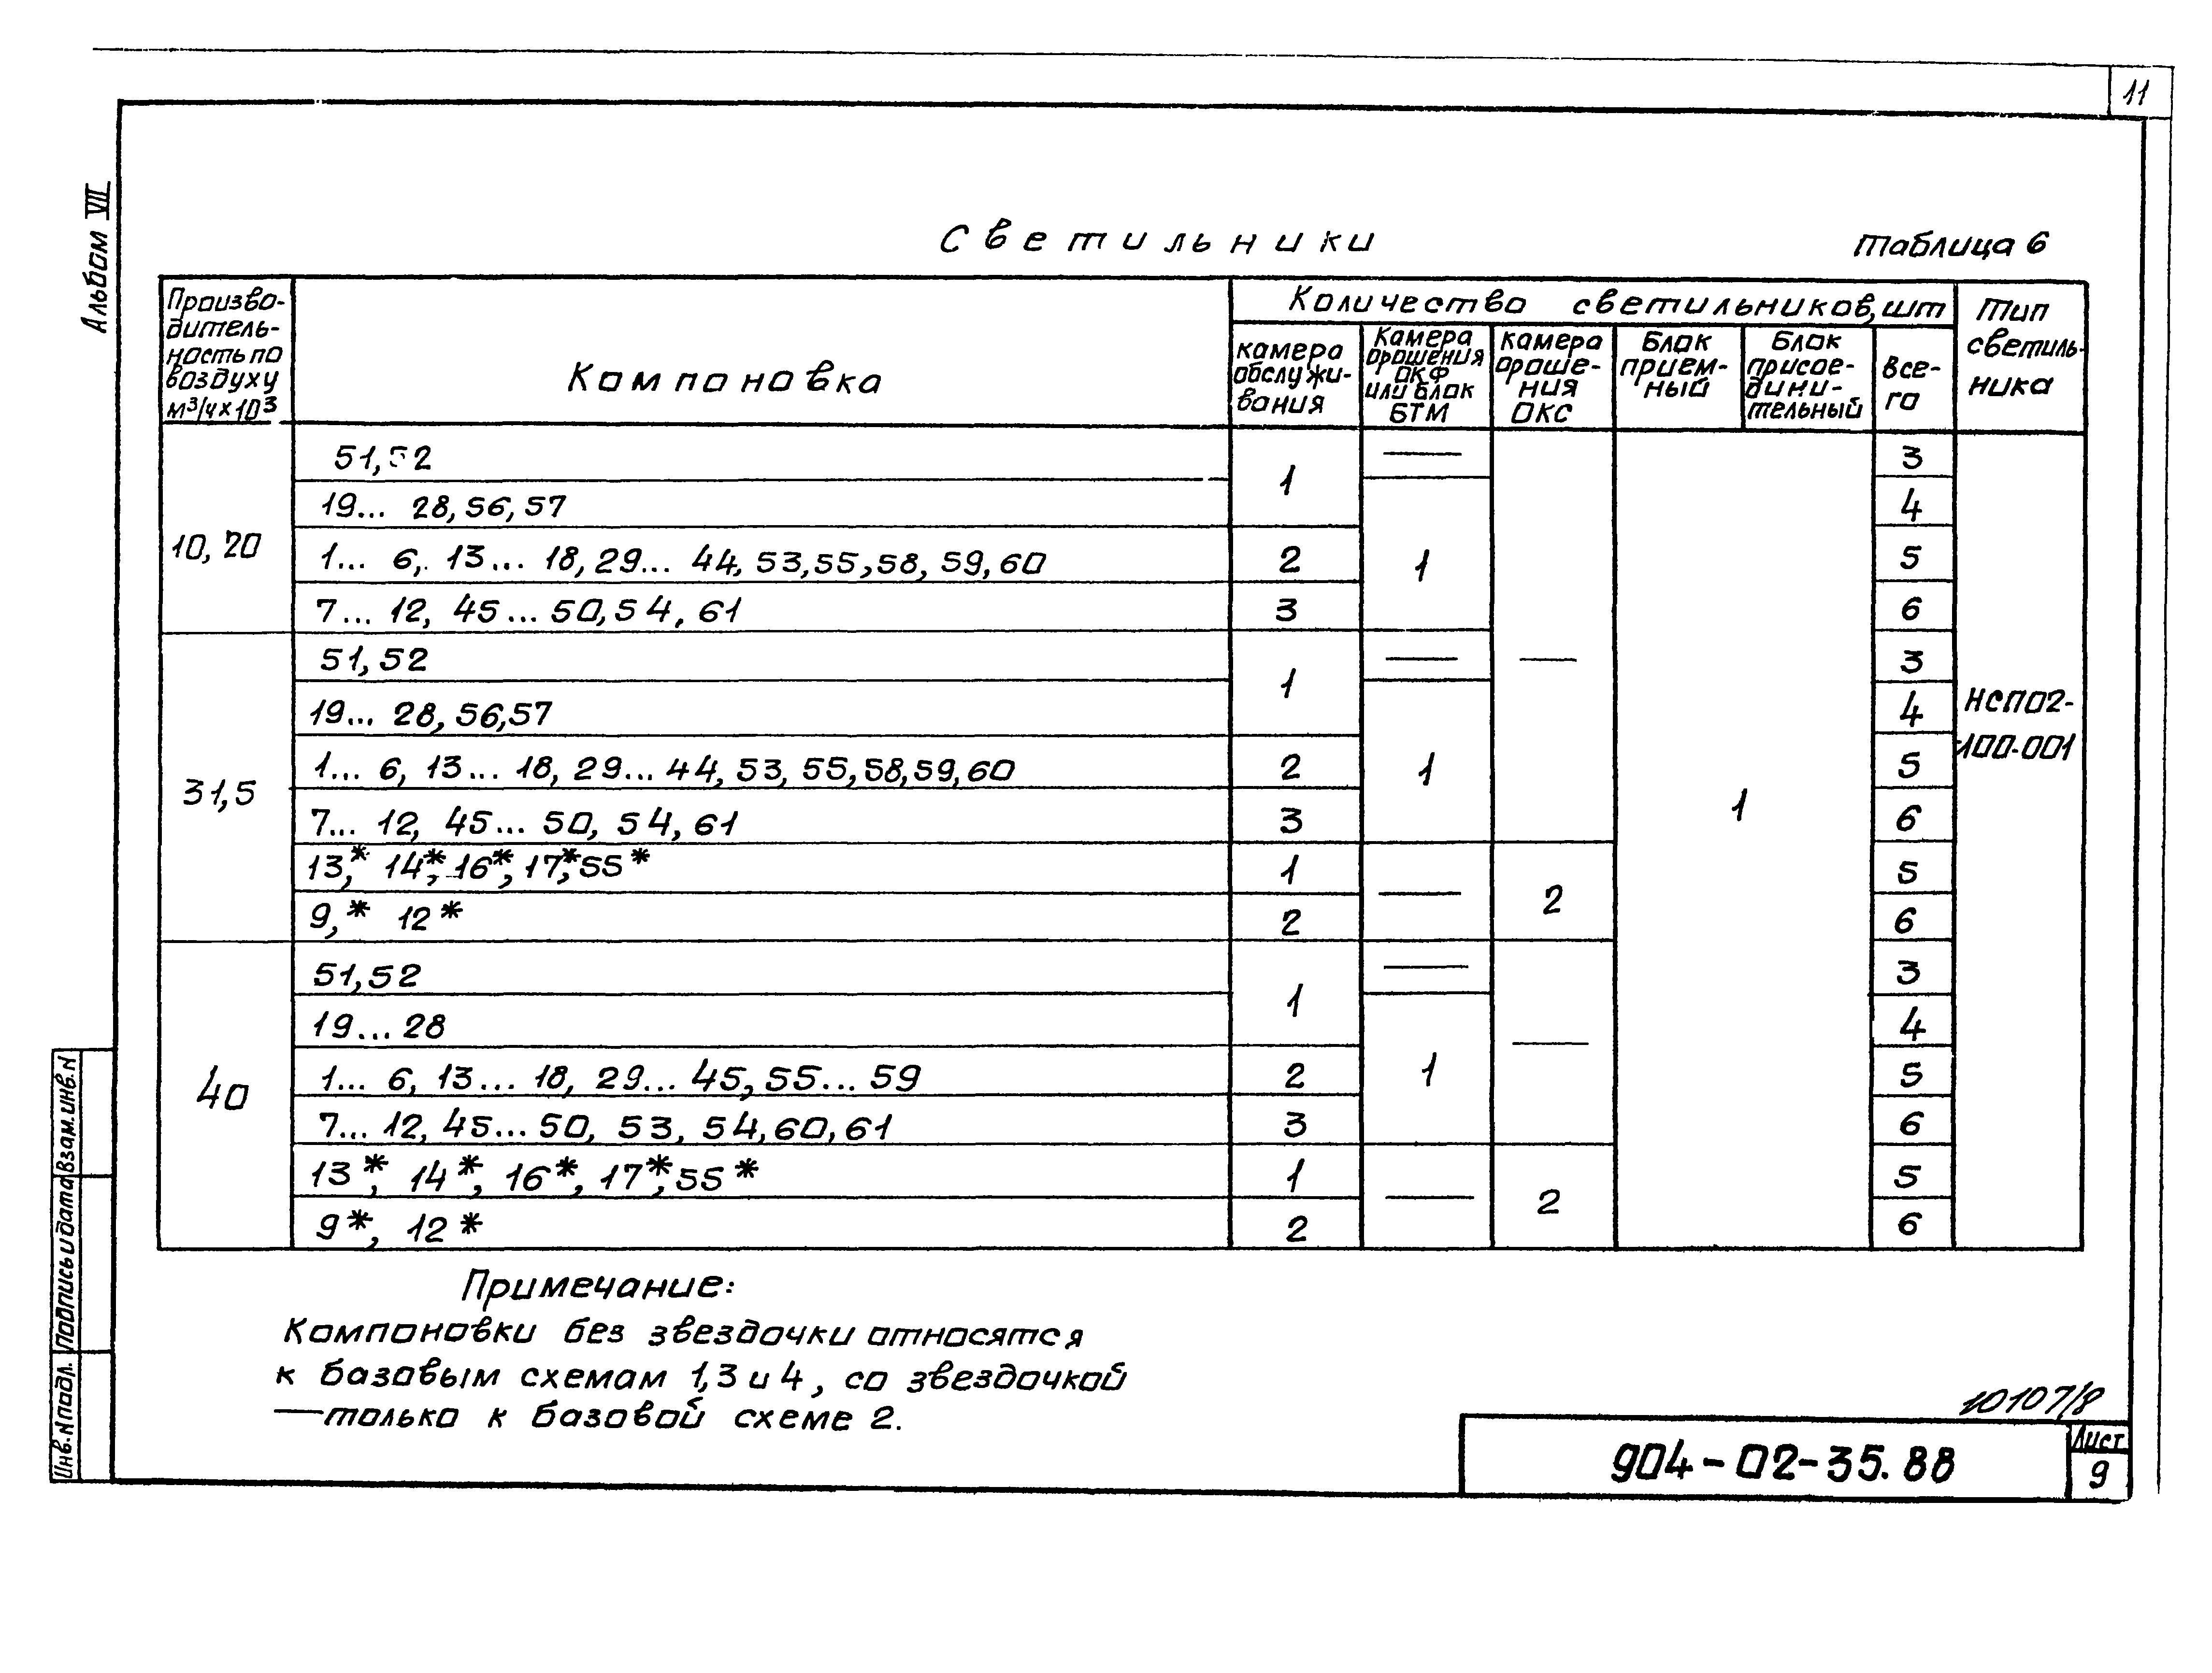 11
Альбом VII
Светильники
таблица 6
Произво-
дитель-
ность по
воздуху
м³/ч×10³
Компоновка
Количество светильников, шт
Тип
светиль-
ника
камера
обслужи-
вания
Камера
орошения
ОКФ
или блок
БТМ
камера
ороше-
ния
ОКС
Блок
прием-
ный
Блок
присое-
дини-
тельный
все-
го
10, 20
51, 52
1
—
—
1
3
НСП02-
100-001
19... 28, 56, 57
1
4
1... 6, 13... 18, 29... 44, 53, 55, 58, 59, 60
2
5
7... 12, 45... 50, 54, 61
3
6
31,5
51, 52
1
—
3
19... 28, 56, 57
1
4
1... 6, 13... 18, 29... 44, 53, 55, 58, 59, 60
2
5
7... 12, 45... 50, 54, 61
3
6
13,* 14*, 16*, 17*, 55*
1
—
2
5
9,* 12*
2
6
40
51, 52
1
—
—
3
19... 28
1
4
1... 6, 13... 18, 29... 45, 55... 59
2
5
7... 12, 45... 50, 53, 54, 60, 61
3
6
13*, 14*, 16*, 17*, 55*
1
—
2
5
9*, 12*
2
6
Примечание:
Компоновки без звездочки относятся
к базовым схемам 1, 3 и 4, со звездочкой
— только к базовой схеме 2.
10107/8
904-02-35.88
Лист
9
Инв. N подл.
Подпись и дата
Взам. инв. N